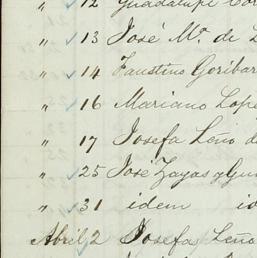 " 12 Guadalupe Cor
" 13 José Mª de L
" 14 Faustino Goribar
" 16 Mariano Lope
" 17 Josefa Leño d
" 25 José Zayas y Gu
" 31 idem io
Abril 2 Josefa Leño